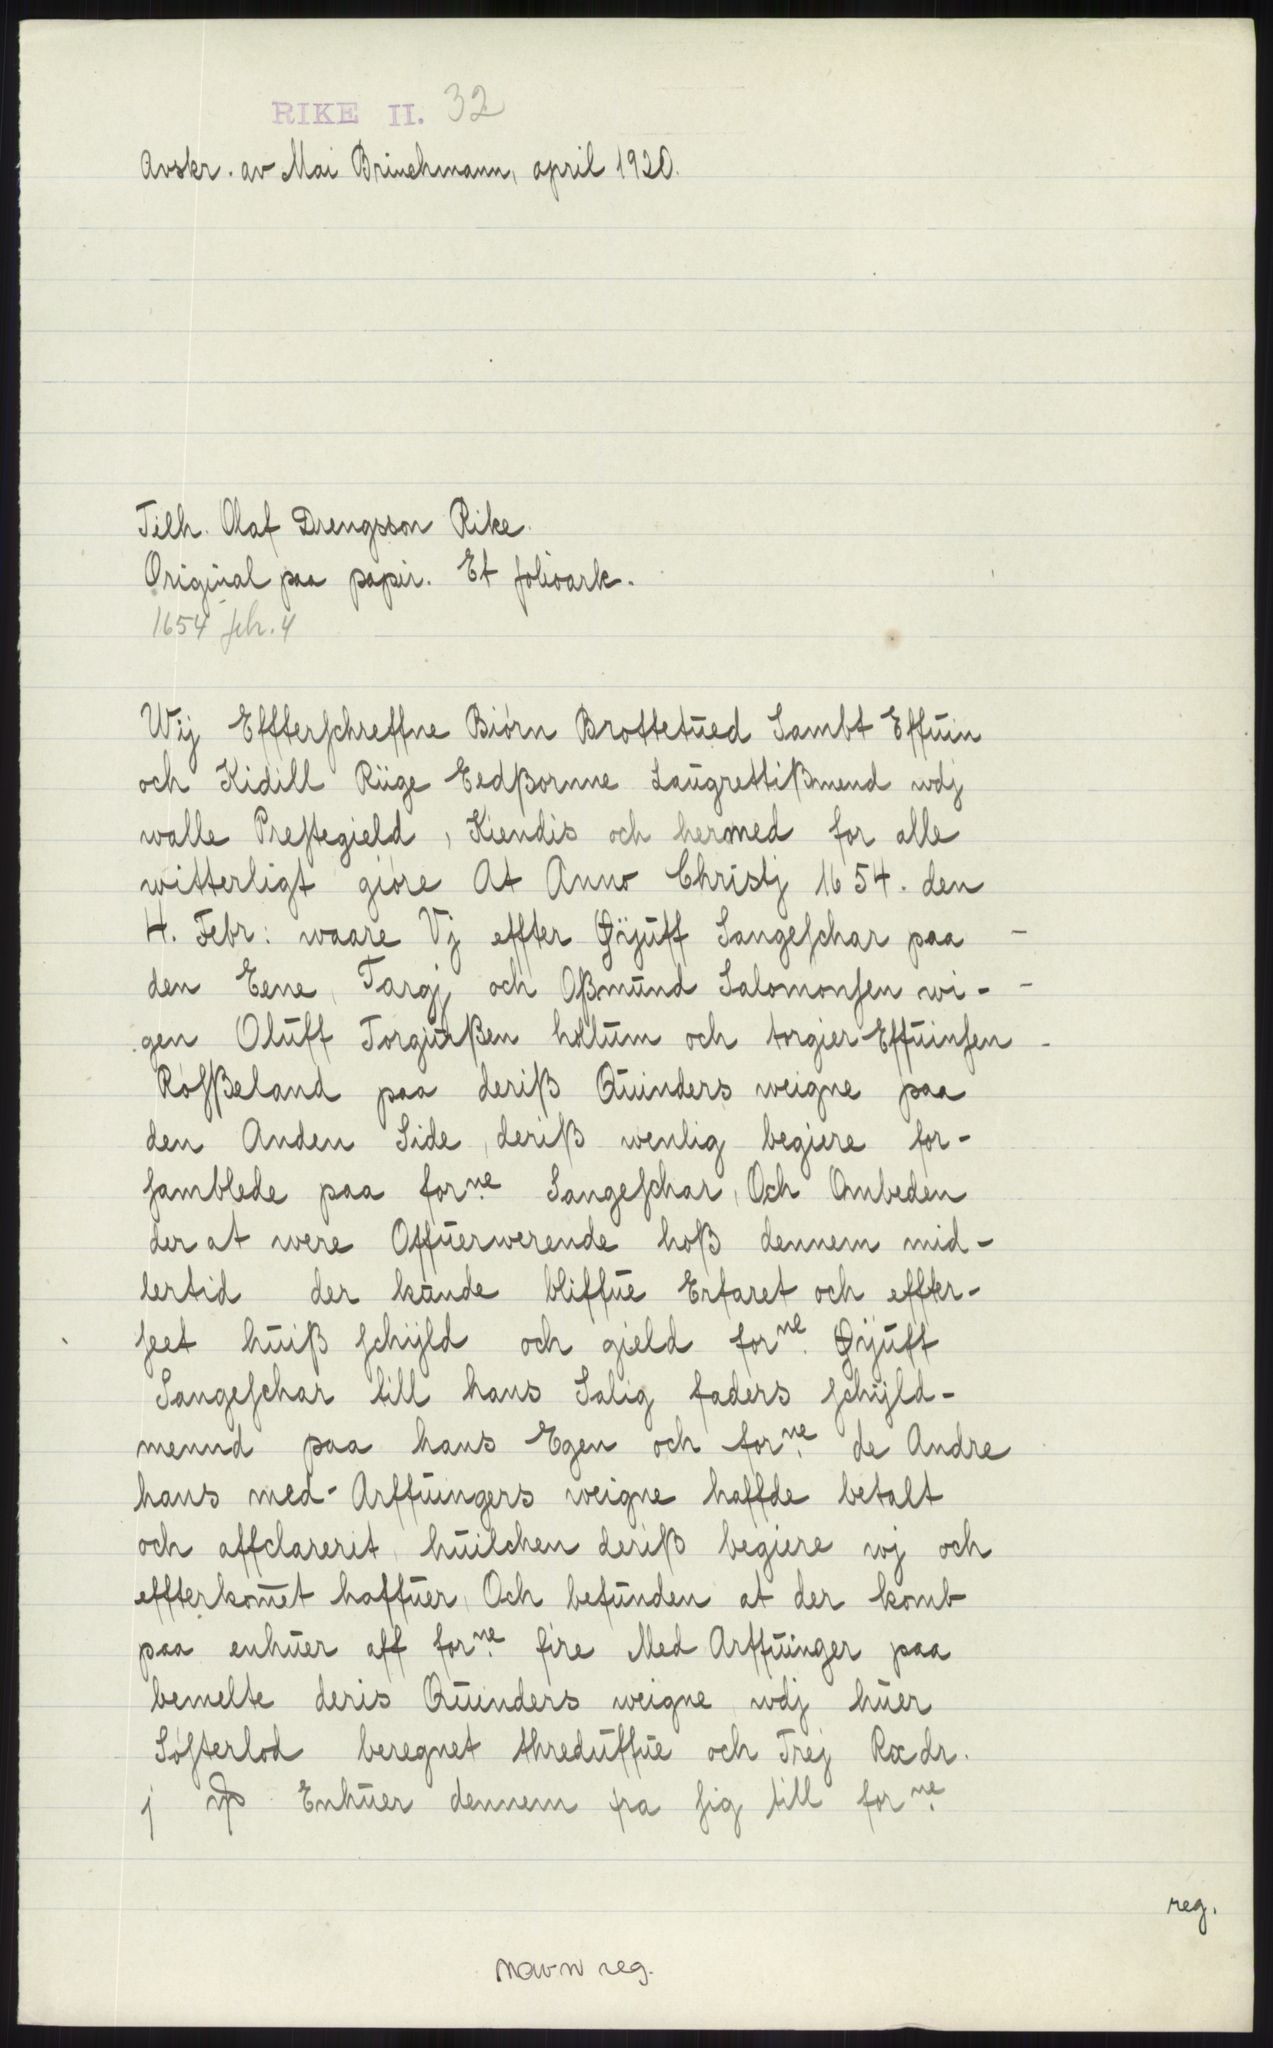 RIKE II. 32
Avskr. av Mai Brinchmann, april 1920.
Tilh. Olaf Drengsson Rike.
Original paa papir. Et folioark.
1654 feb. 4
Wij Effterſchreffne Biórn Brottetued Sambt Effuin
och Kidill Riige Eedßornne Laugrettißmend wdj
walle Preſtegield, Kiendis och hermed for alle
witterligt gióre At Anno Christj 1654. den
4. Febr: waare Vj effter Gÿuff Langeſchar paa
den Eene, Targj och Oßmund Salomonſen wi-
gen Oluff Torgiußen hollum och torgier Effuinſen
Róſßeland paa deriß Quinders weigne paa
den Anden Side, deriß wenlig begiere for-
ſamblede paa forne Langeſchar, Och Ombeden
der at were Offuerwerende hoß dennem mid-
lertid der kunde bliffue Erfaret och effter-
ſeet huiß ſchÿld och gield forne Gÿuff
Langeſchar till hans Salig faders ſchÿld-
mennd paa hans Egen och forne de Andre
hans med-Arffuingers weigne haffde betalt
och affclarerit, huilchen deriß begiere wj och
effterkom̄et haffuer, Och befunden at der komb
paa enhuer aff forne fire Med Arffuinger paa
bemelte deris Quinders weigne wdj huer
Sóſterlod beregnet threduffue och Trej Rxdr.
j Enhuer dennem fra ſig till forne
reg.
navn reg.